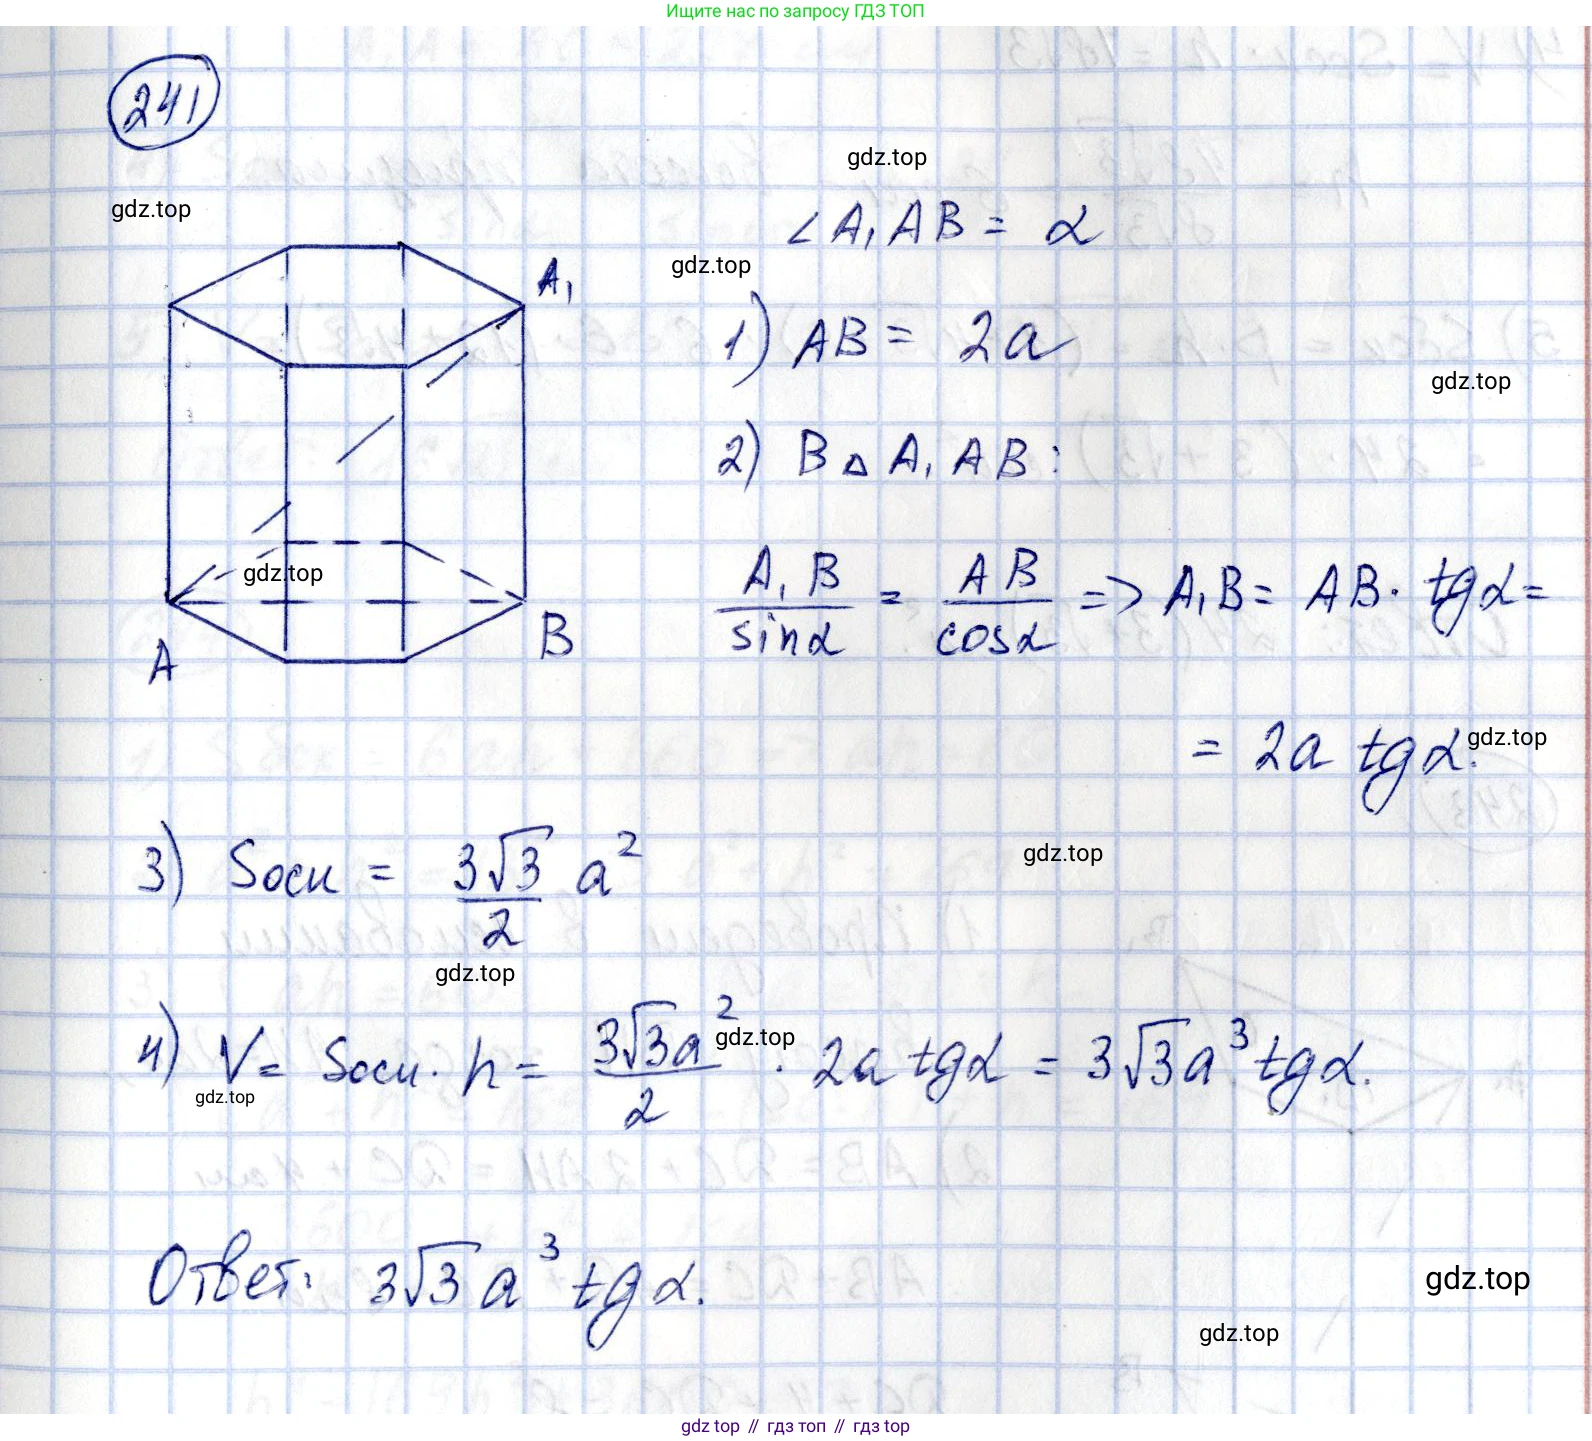 Ищите нас по запросу ГДЗ ТОП
241
gdz.top
gdz.top
∠A₁AB = α
gdz.top
A₁
1) AB = 2a
gdz.top
2) В △ A₁AB:
A₁B/sinα = AB/cosα => A₁B = AB · tgα =
gdz.top
A
B
= 2a tgα.
gdz.top
3) Sосн = 3√3/2 a²
gdz.top
gdz.top
4) V = Sосн · h = 3√3a²/2 · 2a tgα = 3√3a³ tgα.
gdz.top
gdz.top
Ответ: 3√3a³ tgα.
gdz.top
gdz.top
gdz top // гдз топ // gdz top